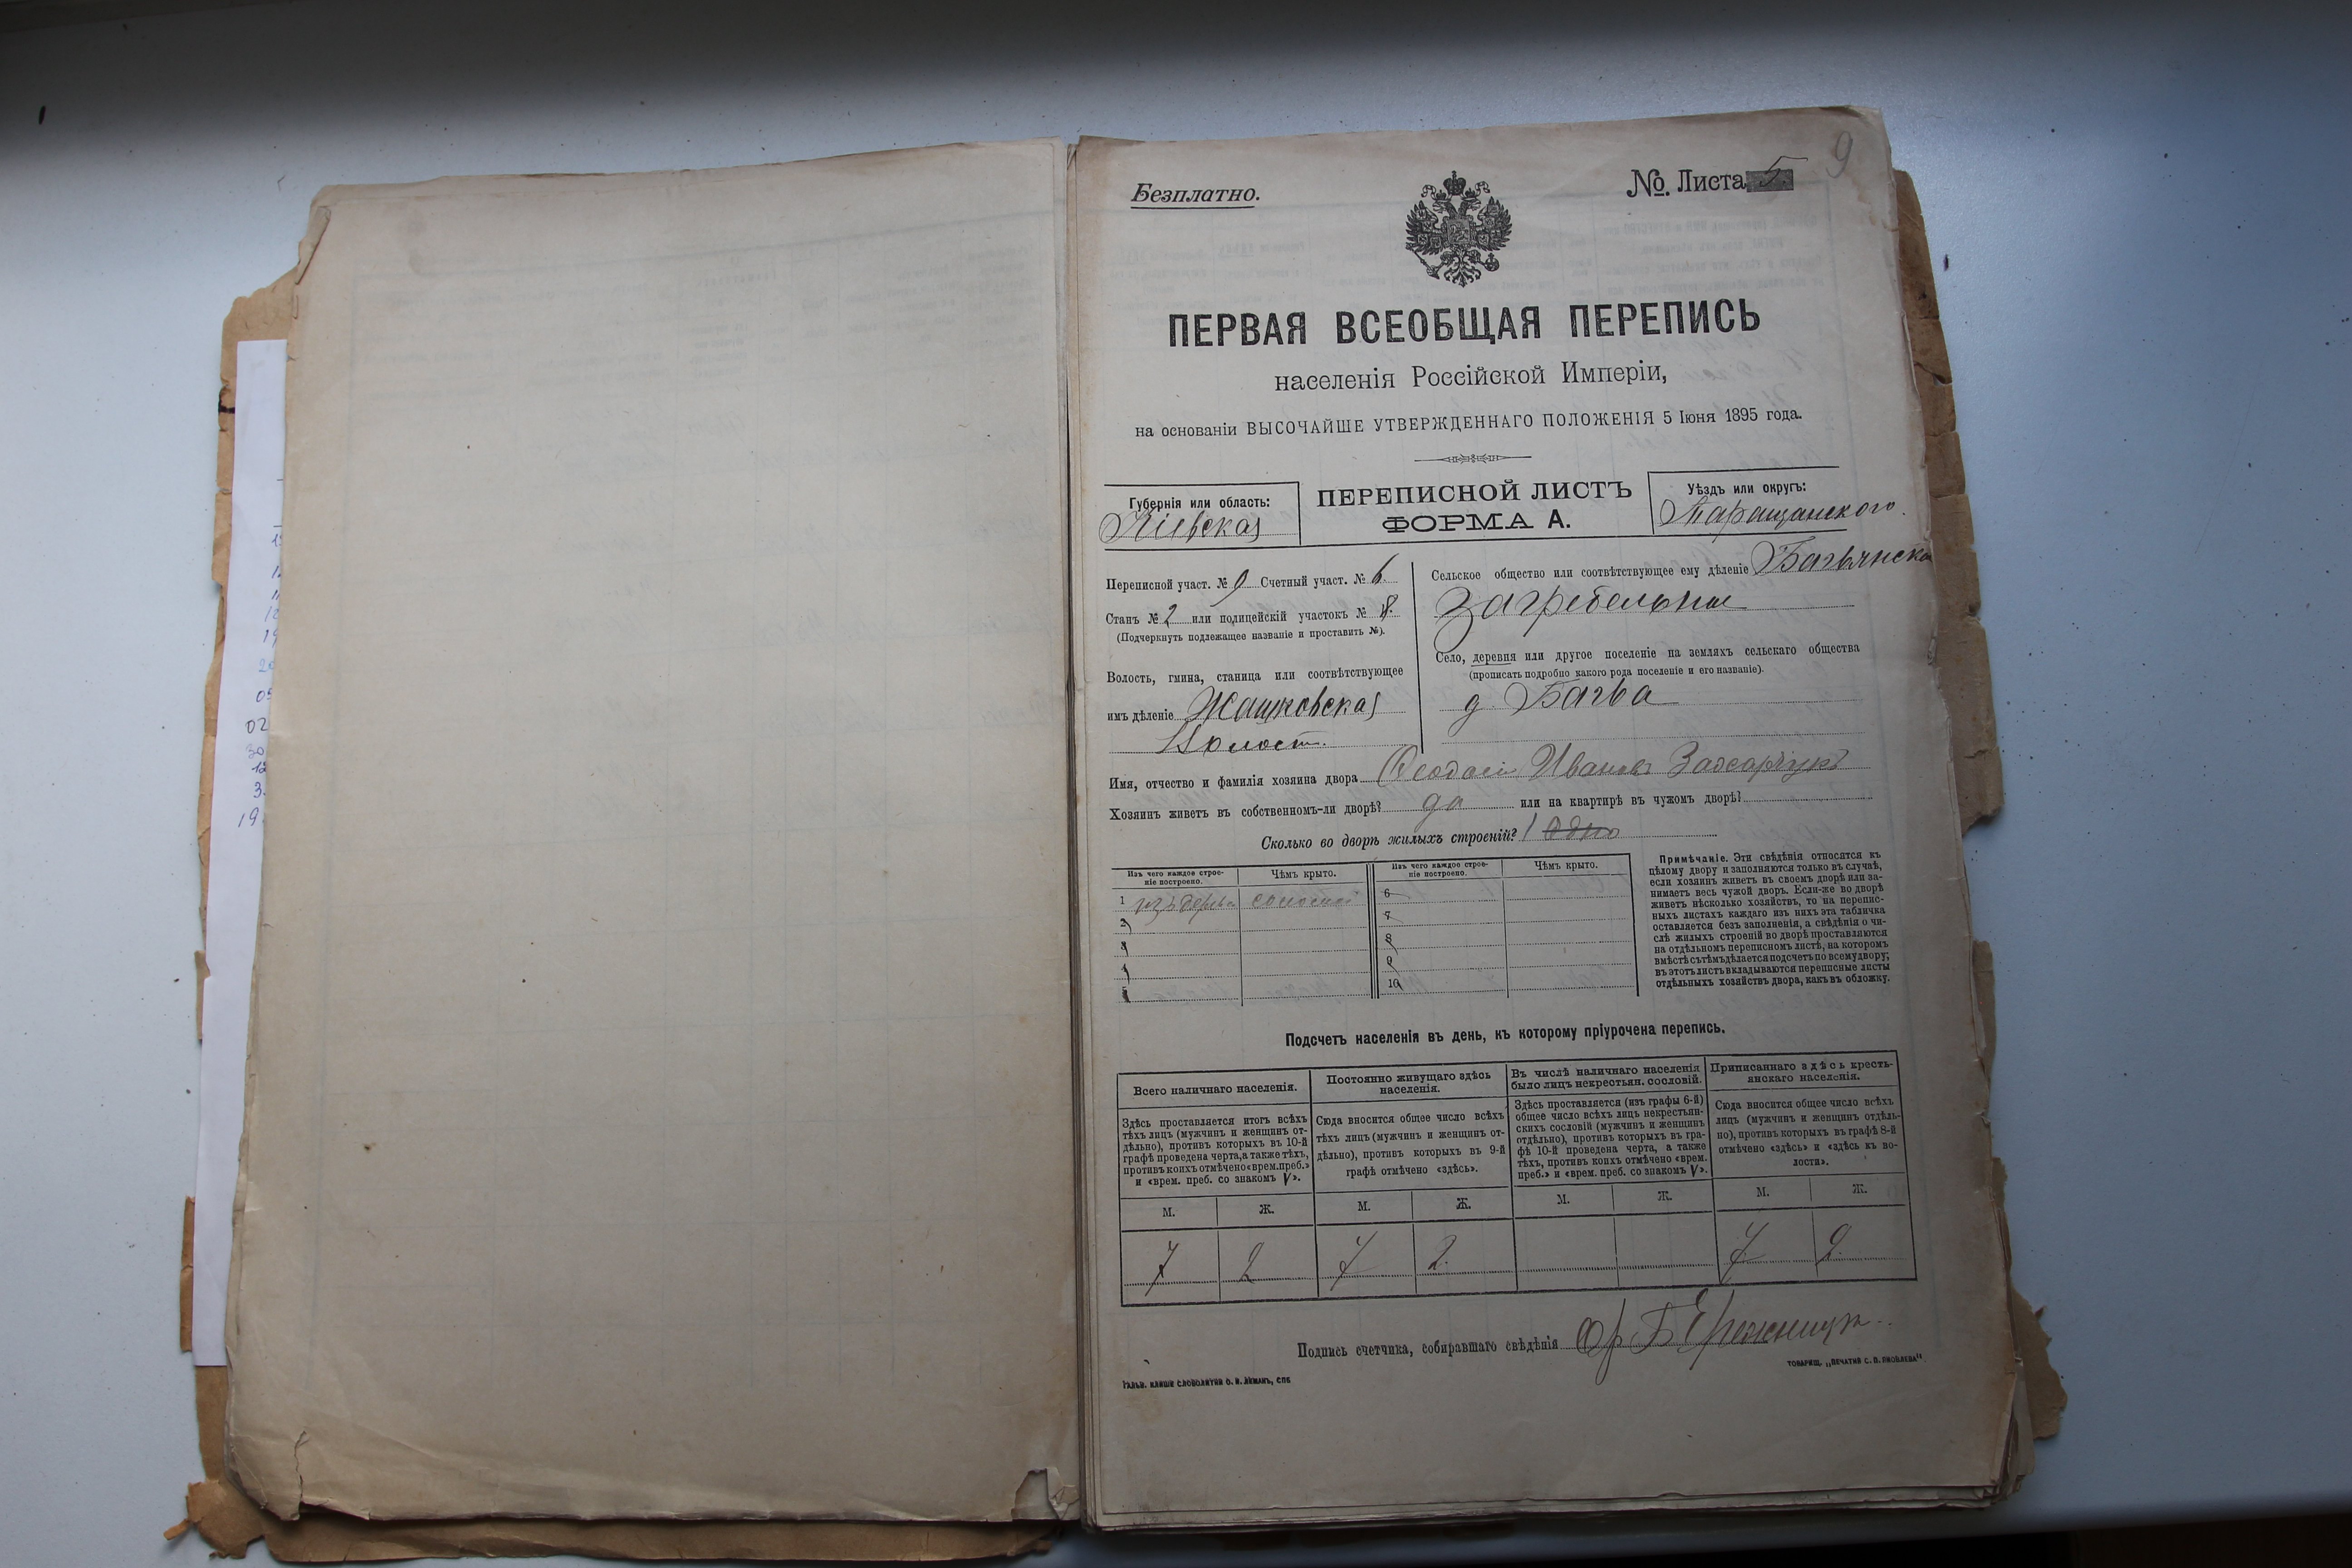 9
Безплатно.
№. Листа 5.
ПЕРВАЯ ВСЕОБЩАЯ ПЕРЕПИСЬ
населенія Россійской Имперіи,
на основаніи ВЫСОЧАЙШЕ УТВЕРЖДЕННАГО ПОЛОЖЕНІЯ 5 Іюня 1895 года.
Губернія или область:
Кіевская
ПЕРЕПИСНОЙ ЛИСТЪ
ФОРМА А.
Уѣздъ или округъ:
Таращанского.
Переписной участ. № 9 Счетный участ. № 6.
Станъ № 2 или полицейскій участокъ № 8.
(Подчеркнуть подлежащее названіе и проставить №).
Волость, гмина, станица или соотвѣтствующее
имъ дѣленіе Жашковская
Волост.
Сельское общество или соотвѣтствующее ему дѣленіе Багвянска
Загребельни
Село, деревня или другое поселеніе на земляхъ сельскаго общества
(прописать подробно какого рода поселеніе и его названіе).
д. Багва
Имя, отчество и фамилія хозяина двора Феодосій Ивановъ Захарчукъ
Хозяинъ живетъ въ собственномъ-ли дворѣ? да или на квартирѣ въ чужомъ дворѣ?
Сколько во дворѣ жилыхъ строеній? 1 Одно
Изъ чего каждое строе-
ніе построено.
Чѣмъ крыто.
Изъ чего каждое строе-
ніе построено.
Чѣмъ крыто.
1 изъ дерева соломой 6
2 7
3 8
4 9
5 10
Примѣчаніе. Эти свѣдѣнія относятся къ
цѣлому двору и заполняются только въ случаѣ,
если хозяинъ живетъ въ своемъ дворѣ или за-
нимаетъ весь чужой дворъ. Если-же во дворѣ
живетъ нѣсколько хозяйствъ, то на перепис-
ныхъ листахъ каждаго изъ нихъ эта табличка
оставляется безъ заполненія, а свѣдѣнія о чи-
слѣ жилыхъ строеній во дворѣ проставляются
на отдѣльномъ переписномъ листѣ, на которомъ
вмѣстѣ съ тѣмъ дѣлается подсчетъ по всему двору;
въ этотъ листъ вкладываются переписные листы
отдѣльныхъ хозяйствъ двора, какъ въ обложку.
Подсчетъ населенія въ день, къ которому пріурочена перепись.
Всего наличнаго населенія.
Здѣсь проставляется итогъ всѣхъ
тѣхъ лицъ (мужчинъ и женщинъ от-
дѣльно), противъ которыхъ въ 10-й
графѣ проведена черта, а также тѣхъ,
противъ коихъ отмѣчено «врем. преб.»
и «врем. преб. со знакомъ V».
Постоянно живущаго здѣсь
населенія.
Сюда вносится общее число всѣхъ
тѣхъ лицъ (мужчинъ и женщинъ от-
дѣльно), противъ которыхъ въ 9-й
графѣ отмѣчено «здѣсь».
Въ числѣ наличнаго населенія
было лицъ некрестьян. сословій.
Здѣсь проставляется (изъ графы 6-й)
общее число всѣхъ лицъ некрестьян-
скихъ сословій (мужчинъ и женщинъ
отдѣльно), противъ которыхъ въ гра-
фѣ 10-й проведена черта, а также
тѣхъ, противъ коихъ отмѣчено «врем.
преб.» и «врем. преб. со знакомъ V».
Приписаннаго здѣсь кресть-
янскаго населенія.
Сюда вносится общее число всѣхъ
лицъ (мужчинъ и женщинъ отдѣль-
но), противъ которыхъ въ графѣ 8-й
отмѣчено «здѣсь» и «здѣсь къ во-
лости».
М. Ж. М. Ж. М. Ж. М. Ж.
7 2 7 2. 7 2.
Подпись счетчика, собиравшаго свѣдѣнія
ГАЛЬВ. КЛИШЕ СЛОВОЛИТНИ О. И. ЛЕМАНЪ, СПБ
ТОВАРИЩ. „ПЕЧАТНЯ С. П. ЯКОВЛЕВА"